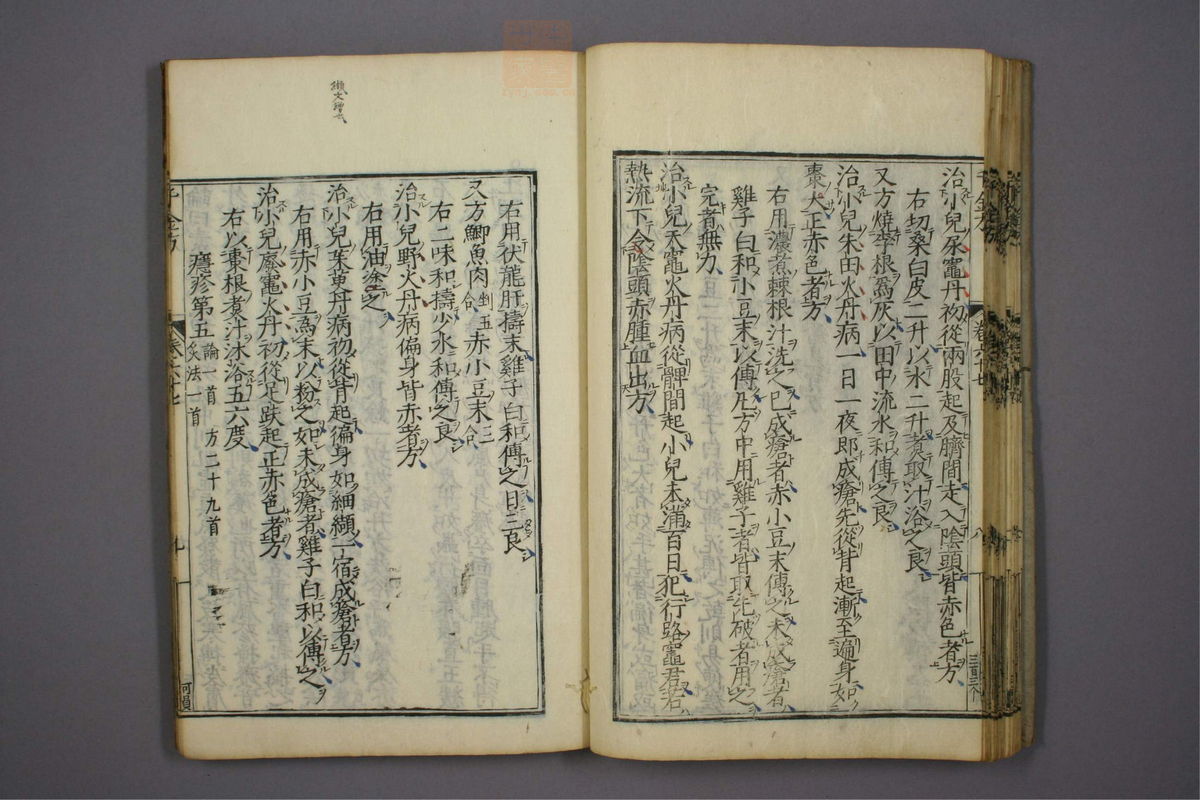 治小兒尿竈丹初從兩股起及臍間走入陰頭皆赤色者方
右切桑白皮二升以水二升煑取汁浴之良
又方燒李根爲灰以田中流水和傅之良
治小兒朱田火丹病一日一夜即成瘡先從背起漸至遍身如
棗大正赤色者方
右用濃煑棘根汁洗之已成瘡者赤小豆末傅之未成瘡者
雞子白和小豆末以傅凡方中用雞子者皆取先破者用之
完者無力
治小兒天竈火丹病從髀間起小兒未滿百日犯行路竈君若
熱流下令陰頭赤腫血出方
右用伏龍肝擣末雞子白和傅之日三良
又方鯽魚肉剉五合赤小豆末三合
右二味和擣少水和傅之良
治小兒野火丹病徧身皆赤者方
右用油塗之
治小兒茱萸丹病初從背起徧身如細纈一宿成瘡者方
右用赤小豆爲末以粉之如未成瘡者雞子白和以傅之
治小兒廢竈火丹初從足趺起正赤色者方
右以棗根煑汁沐浴五六度
癮疹第五論一首 方二十九首 灸法一首